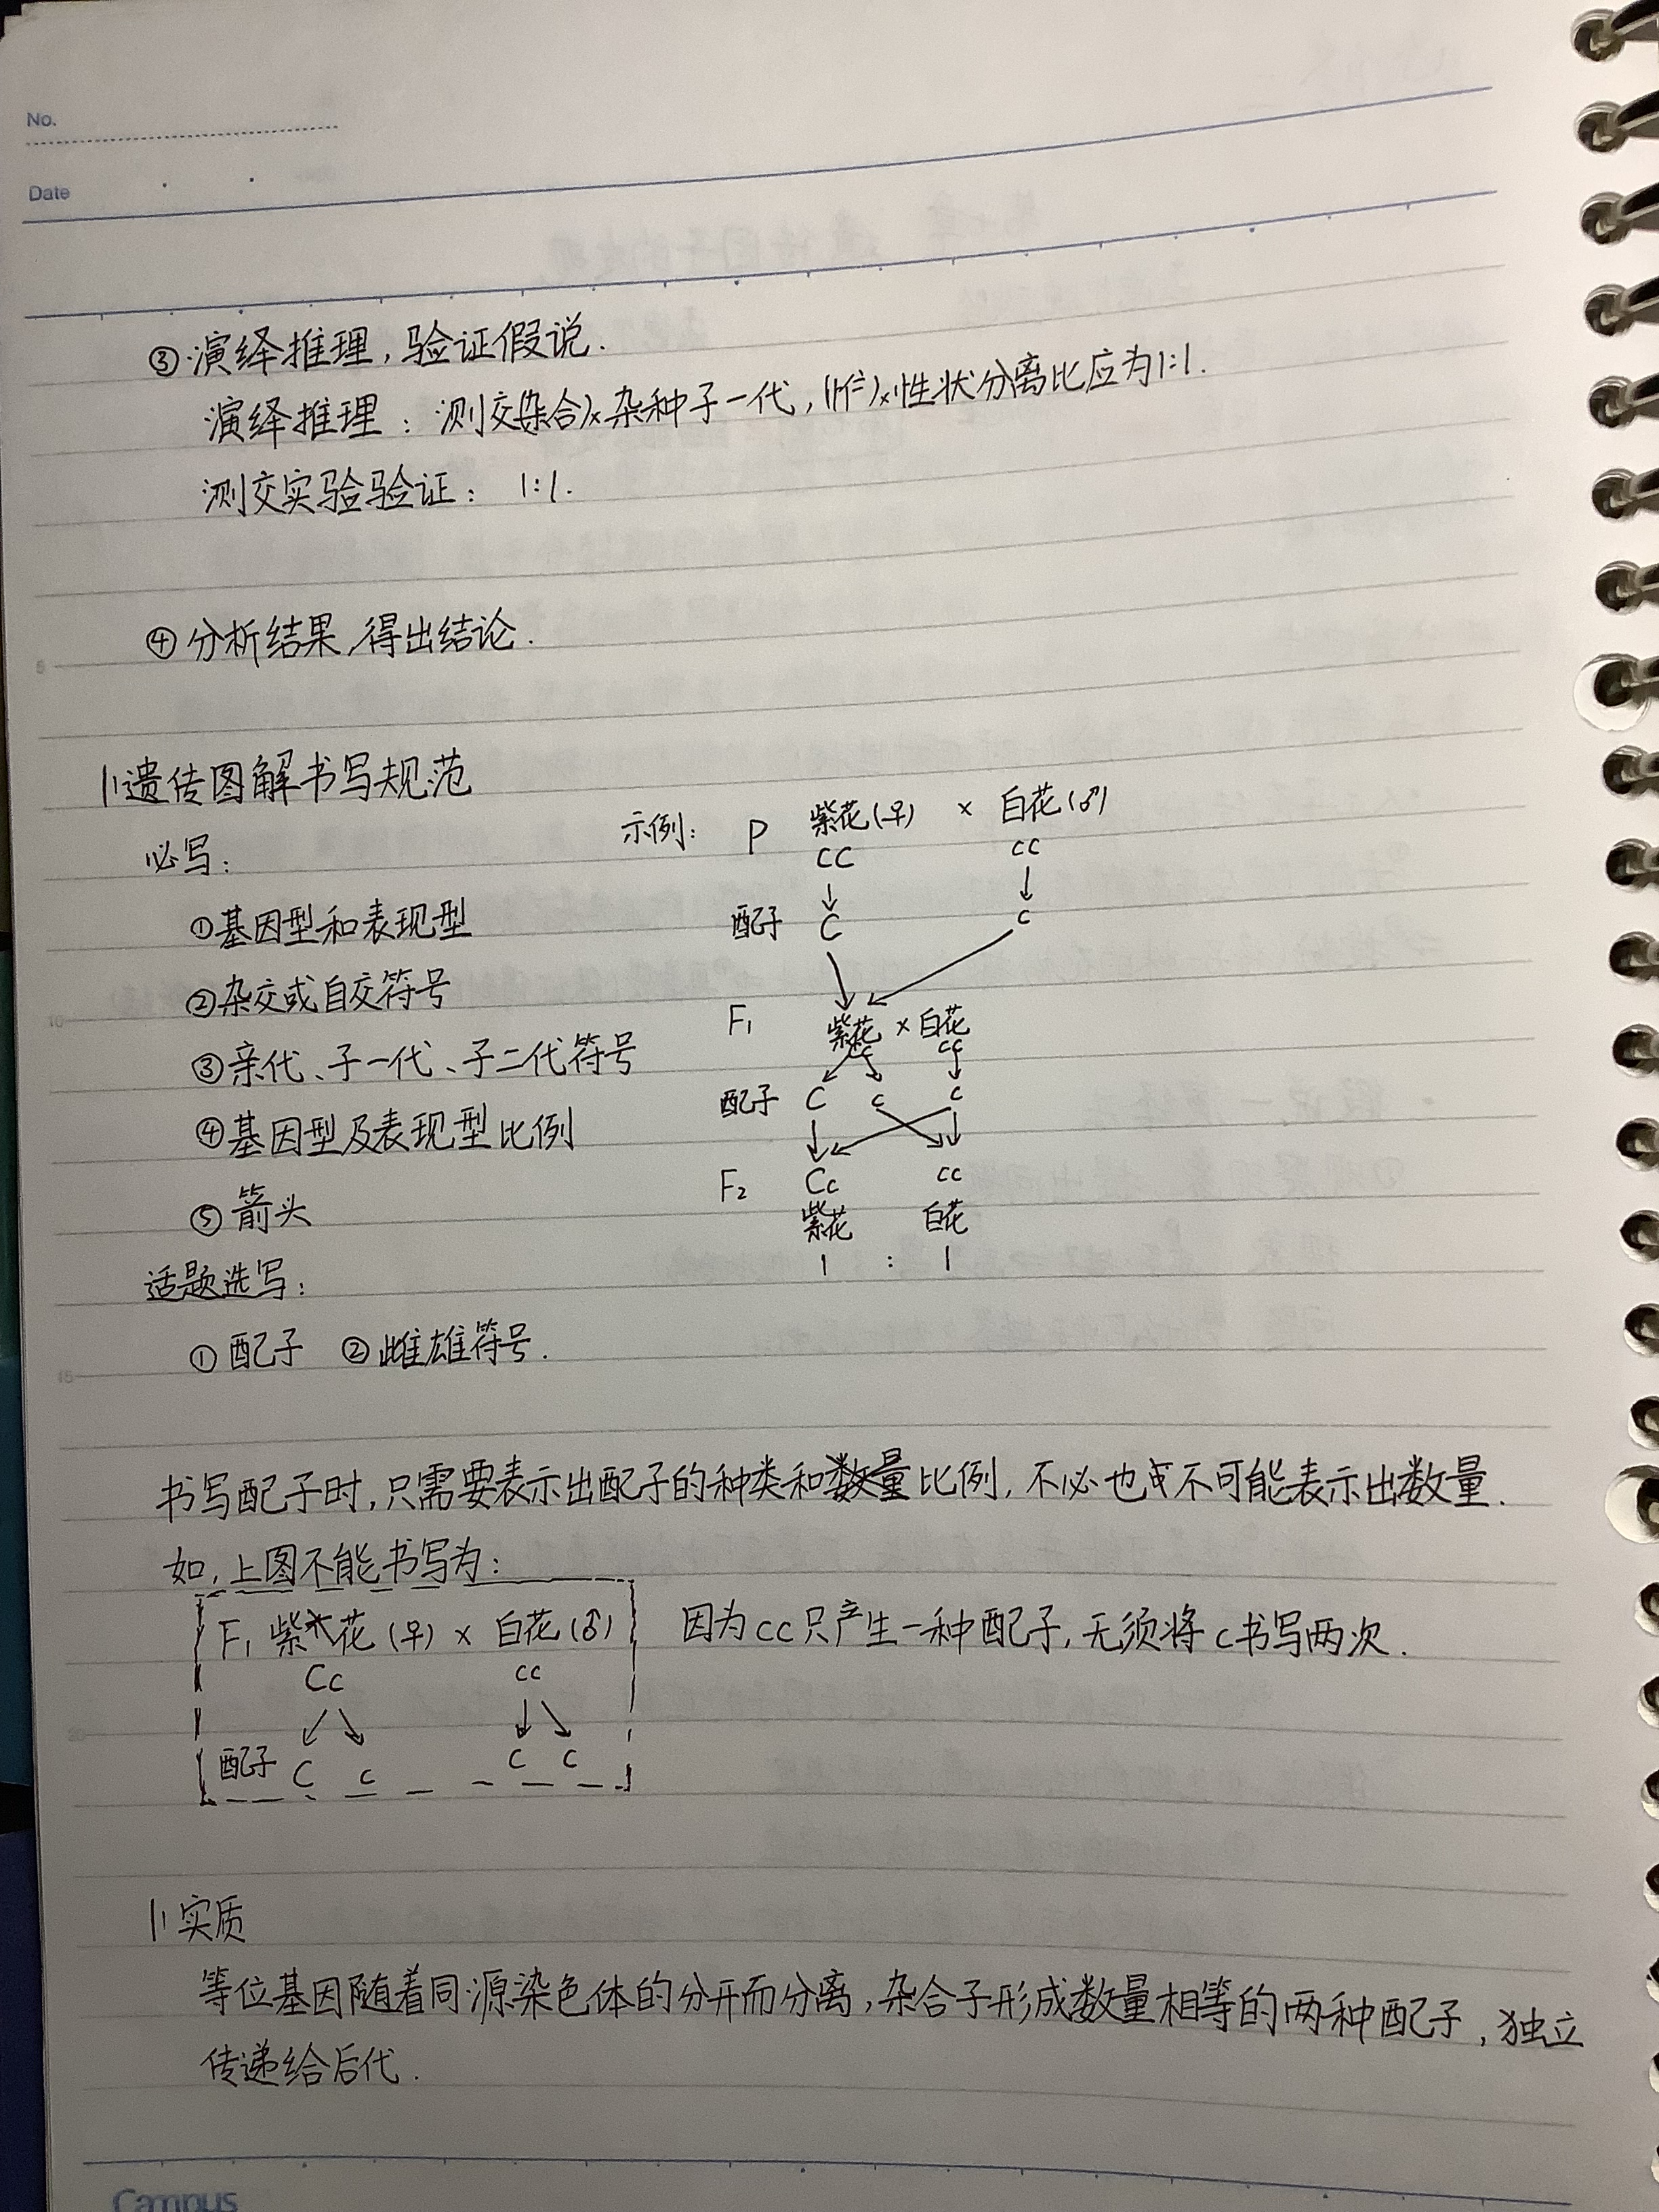 No.
Date
③演绎推理,验证假说.
演绎推理: 测交 × 杂种子一代, 性状分离比应为1:1.
测交实验验证: 1:1.
④分析结果,得出结论.
遗传图解书写规范
必写:
①基因型和表现型
②杂交或自交符号
③亲代、子一代、子二代符号
④基因型及表现型比例
⑤箭头
话题选写:
①配子 ②雌雄符号.
示例: P 紫花(♀) × 白花(♂)
CC cc
配子 C c
F₁ 紫花 × 白花
Cc cc
配子 C c c
F₂ Cc cc
紫花 白花
1 : 1
5
10
15
20
书写配子时,只需要表示出配子的种类和比例,不必也不可能表示出数量.
如,上图不能书写为:
F₁ 紫花(♀) × 白花(♂)
Cc cc
配子 C c c c
因为cc只产生一种配子,无须将c书写两次.
实质
等位基因随着同源染色体的分开而分离,杂合子形成数量相等的两种配子,独立
传递给后代.
Campus